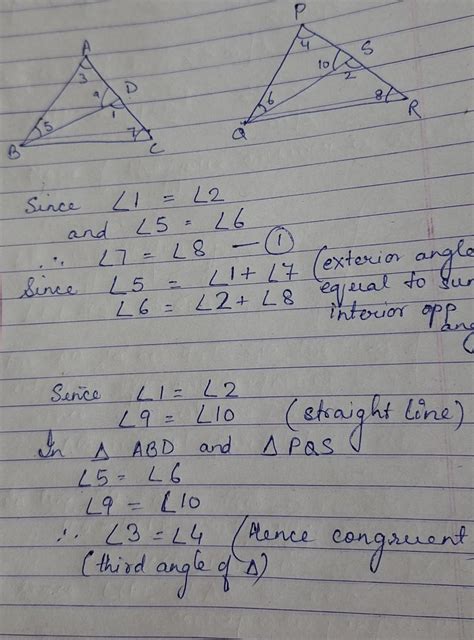 A
3
9
D
1
5
7
B
C
P
4
S
10
2
6
8
Q
R
Since ∠1 = ∠2
and ∠5 = ∠6
∴ ∠7 = ∠8 — ①
Since ∠5 = ∠1 + ∠7 (exterior angle
∠6 = ∠2 + ∠8 equal to sum
interior opp
ang
Since ∠1 = ∠2
∠9 = ∠10 (straight line)
In △ ABD and △ PQS
∠5 = ∠6
∠9 = ∠10
∴ ∠3 = ∠4 (Hence congruent
(third angle of △)